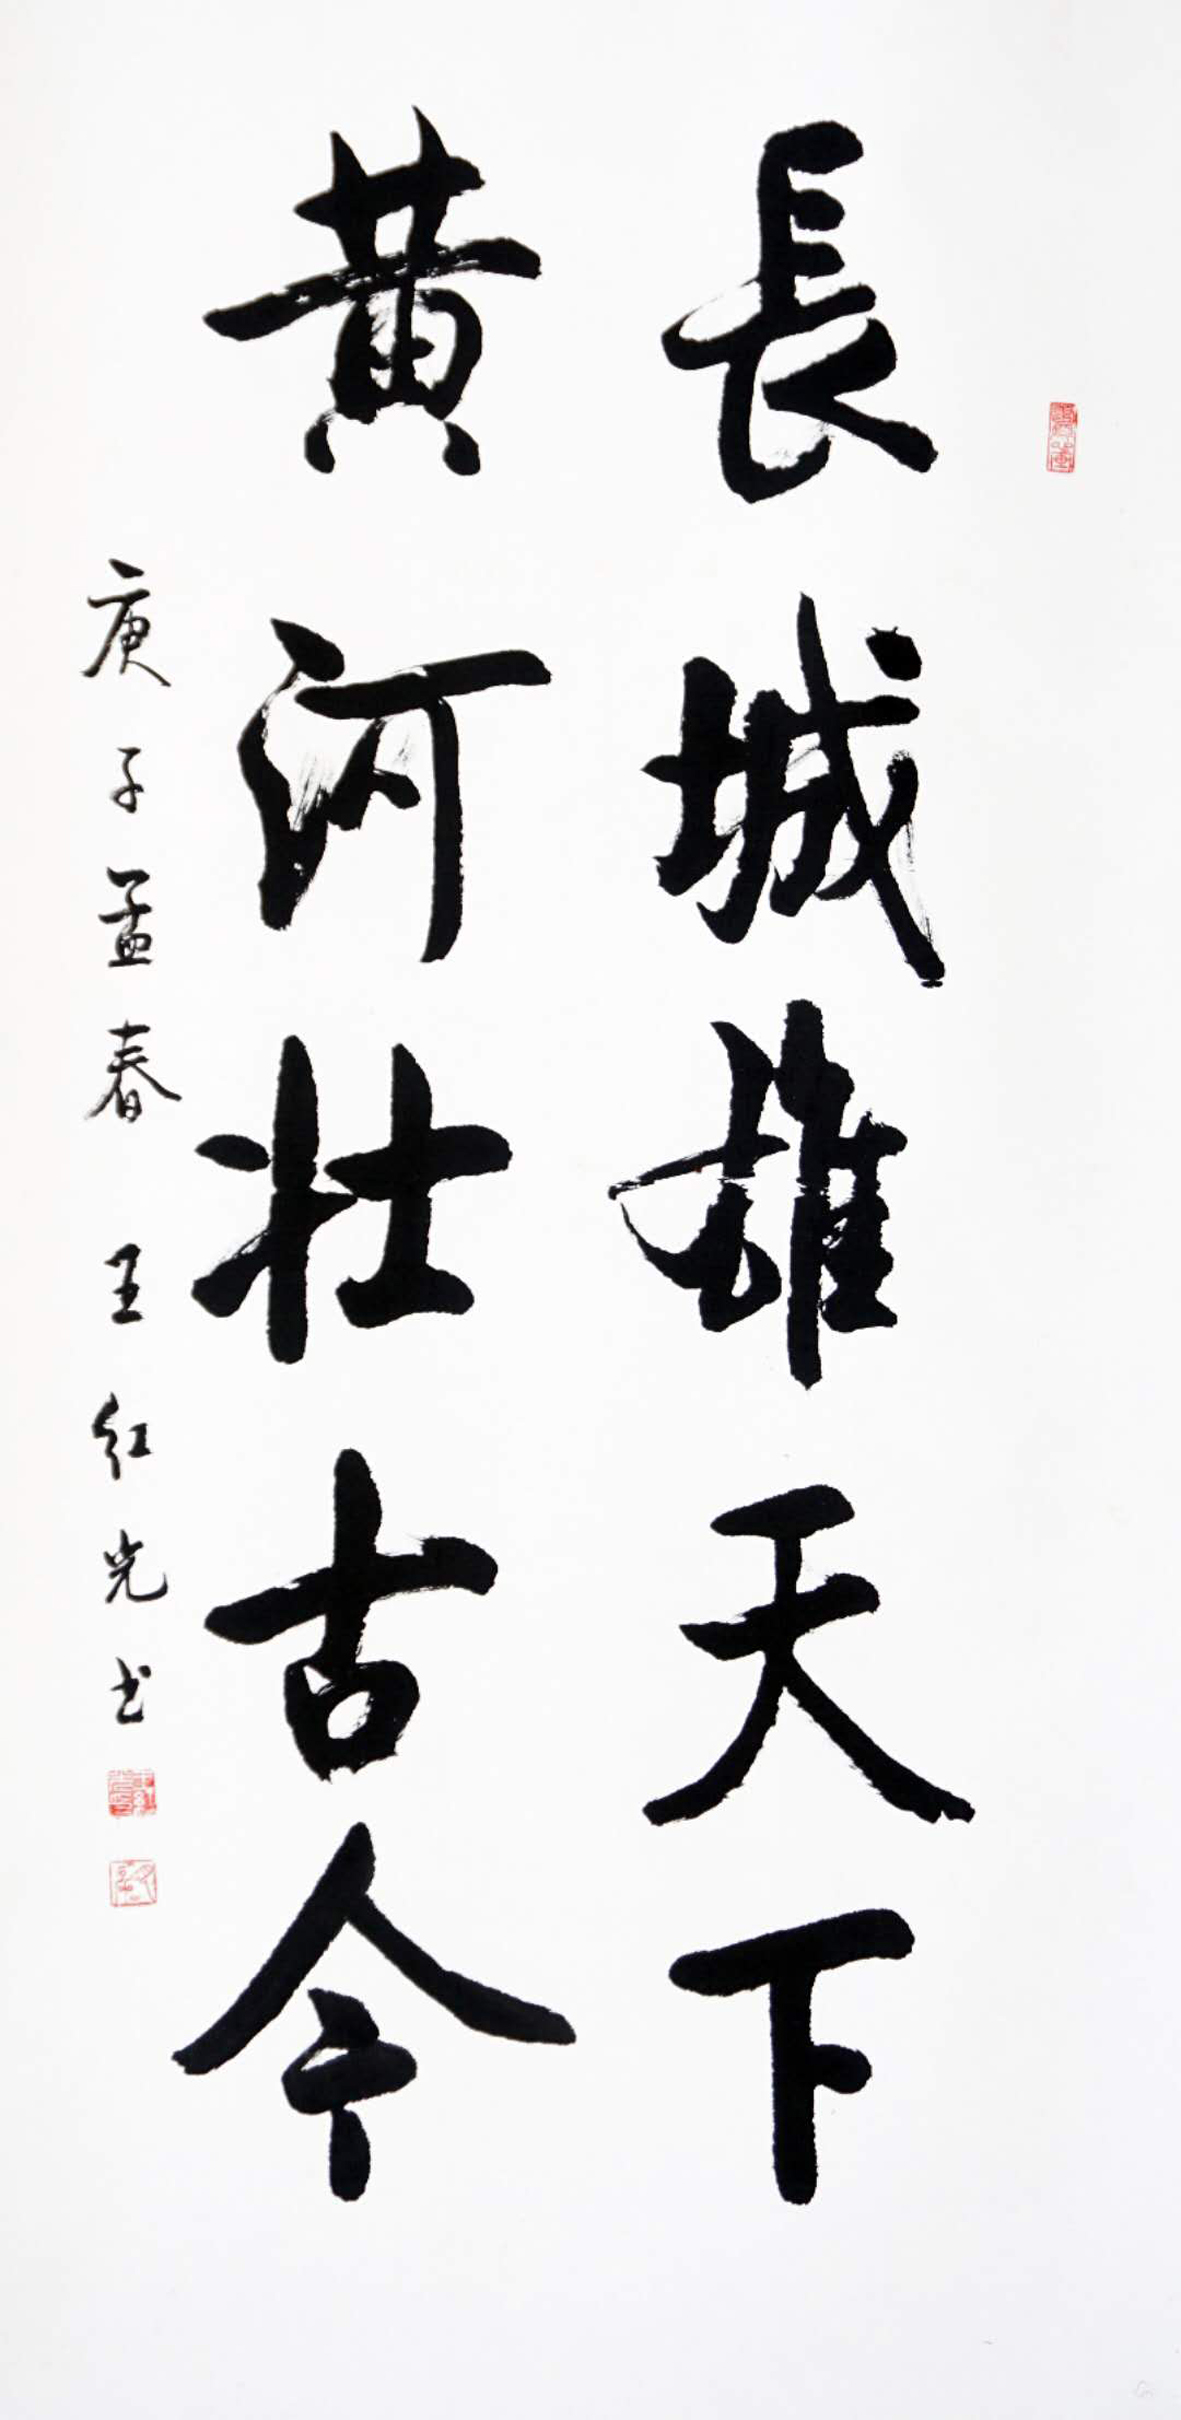 長城雄天下
黄河壮古今
庚子孟春 王红光书